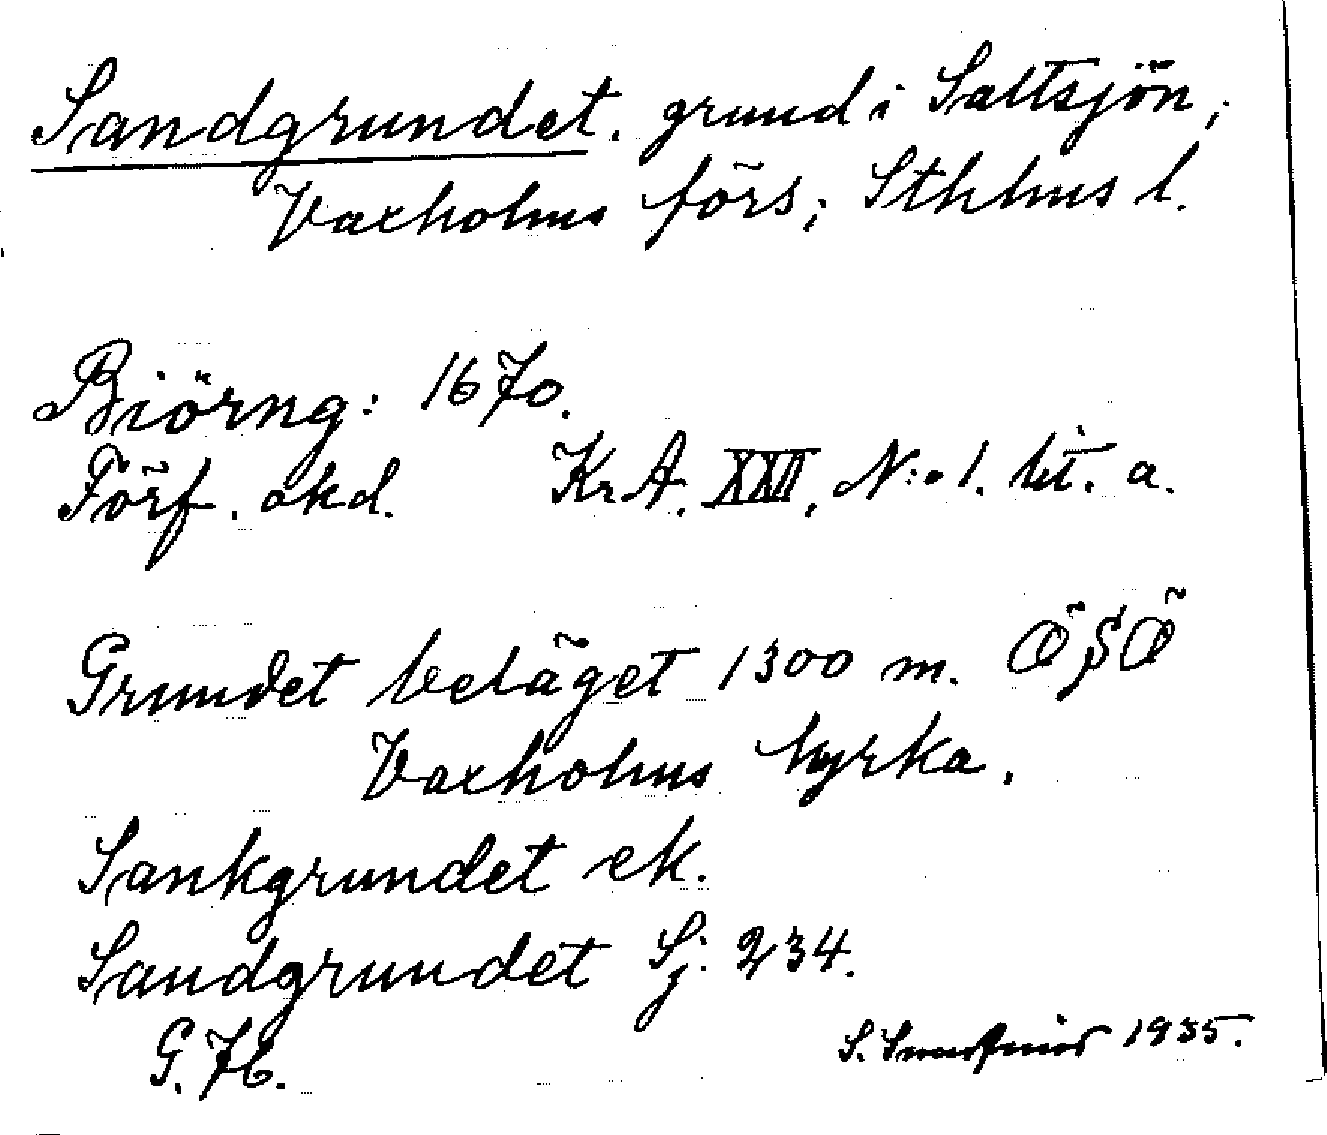 Sandgrundet. grund i Saltsjön,
Vaxholms förs; Sthlms l.
Biörng: 1670.
Förf. okd. Kr. A. XXII, N:o 1. lit. a.
Grundet beläget 1300 m. ÖSÖ
Vaxholms kyrka.
Sankgrundet ek.
Sandgrundet Sj. 234.
G. H.
S. 1935.